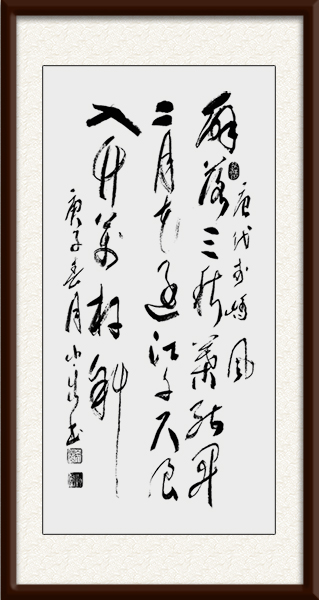 唐代李峤 风
解落三秋葉能开
二月花过江千尺浪
入竹萬竿斜
庚子春月小书